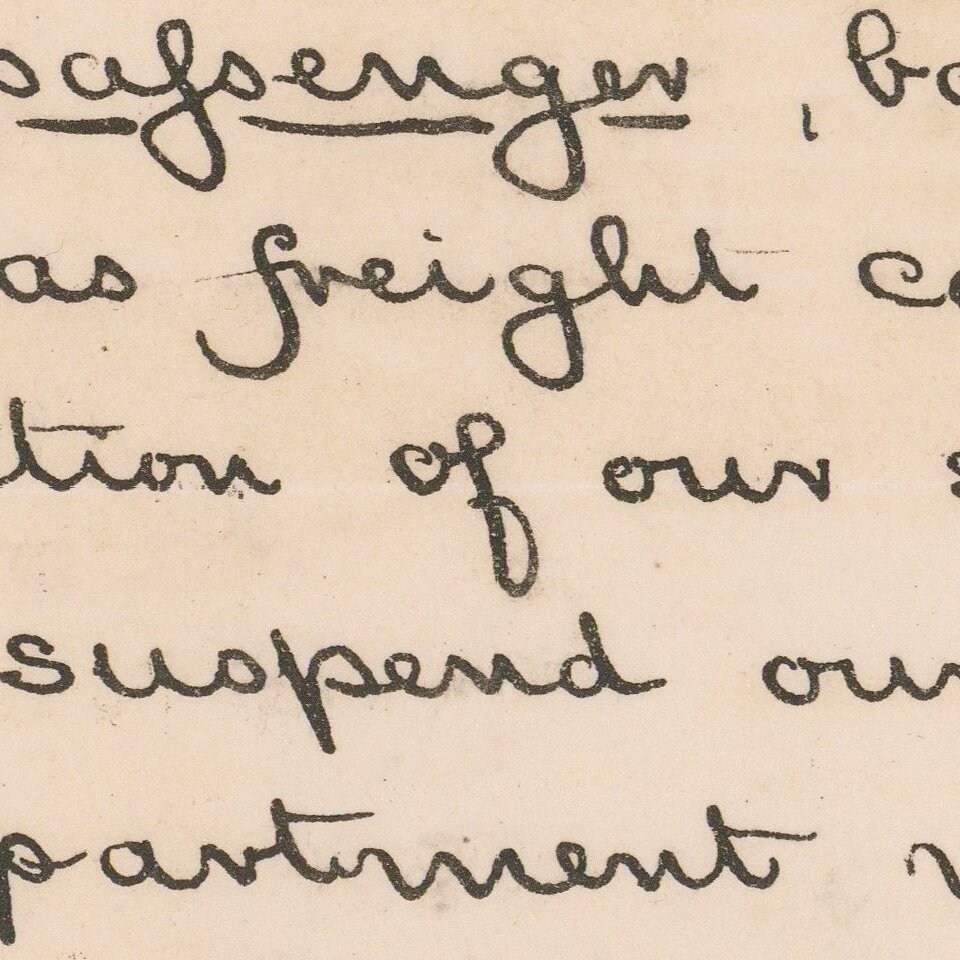 passenger,
as freight
tion of our
suspend our
partment